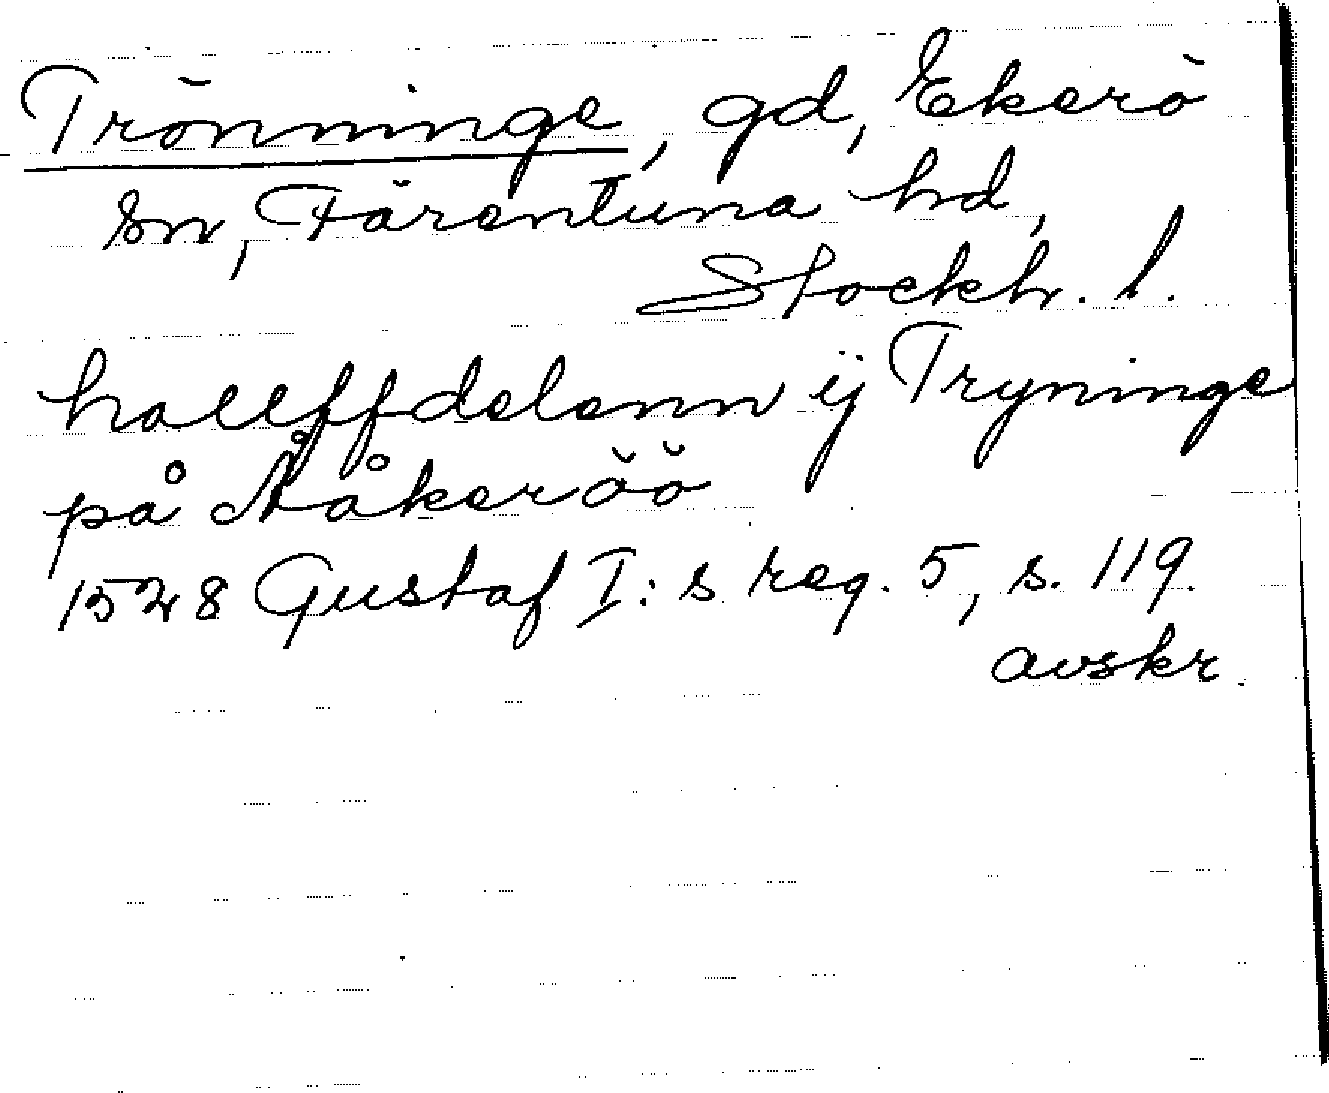 Trönninge, gd, Ekerö
sn, Färentuna hd,
Stockh. l.
hallffdelenn ij Tryninge
på Ååkeröö
1528 Gustaf I:s reg. 5, s. 119.
avskr.